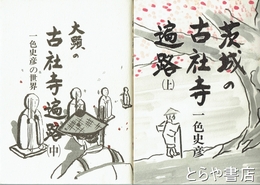 茨城の
古社寺
遍路
(上)
一色史彦
大顎の
古社寺遍路
(中)
一色史彦の世界
とらや書店